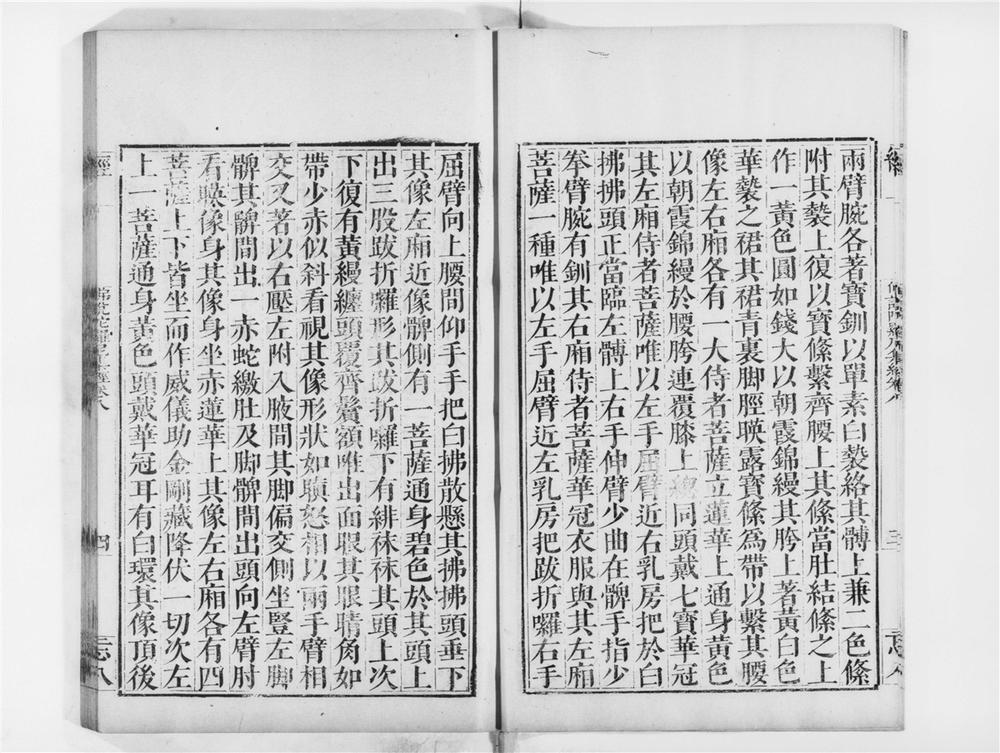 兩臂腕各著寶釧以單素白褺絡其髆上兼二色絛
附其褺上復以寶絛繫齊腰上其絛當肚結絛之上
作一黃色圓如錢大以朝霞錦縵其胯上著黃白色
華褺之裙其裙青裏脚脛暎露寶絛爲帶以繫其腰
像左右廂各有一大侍者菩薩立蓮華上通身黃色
以朝霞錦縵於腰胯連覆膝上總同頭戴七寶華冠
其左廂侍者菩薩唯以左手屈臂近右乳房把於白
拂拂頭正當臨左髆上右手伸臂少曲在髀手指少
拳臂腕有釧其右廂侍者菩薩華冠衣服與其左廂
菩薩一種唯以左手屈臂近左乳房把跋折囉右手
屈臂向上腰間仰手手把白拂散懸其拂拂頭垂下
其像左廂近像髀側有一菩薩通身碧色於其頭上
出三股跋折囉形其跋折囉下有緋袜袜其頭上次
下復有黃縵纏頭覆齊鬢額唯出面眼其眼睛肉如
帶少赤似斜看視其像形狀如瞋怒相以兩手臂相
交叉著以右壓左附入腋間其脚偏交側坐豎左脚
髀其髀間出一赤蛇繳肚及脚髀間出頭向左臂肘
看暎像身其像身坐赤蓮華上其像左右廂各有四
菩薩上下皆坐而作威儀助金剛藏降伏一切次左
上一菩薩通身黃色頭戴華冠耳有白環其像頂後
經
四
志八